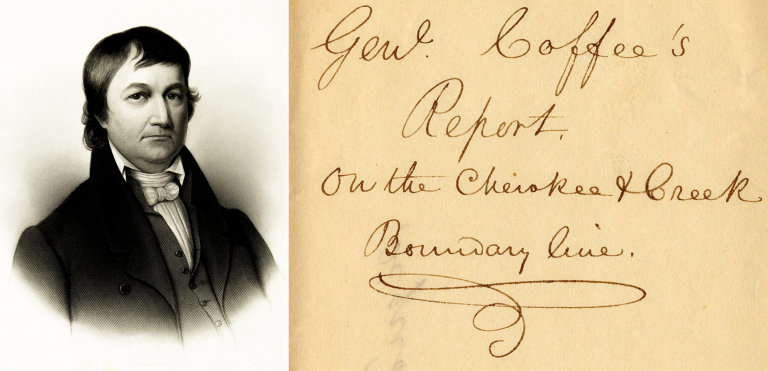 Genl. Coffee's
Report.
On the Cherokee & Creek
Boundary line.